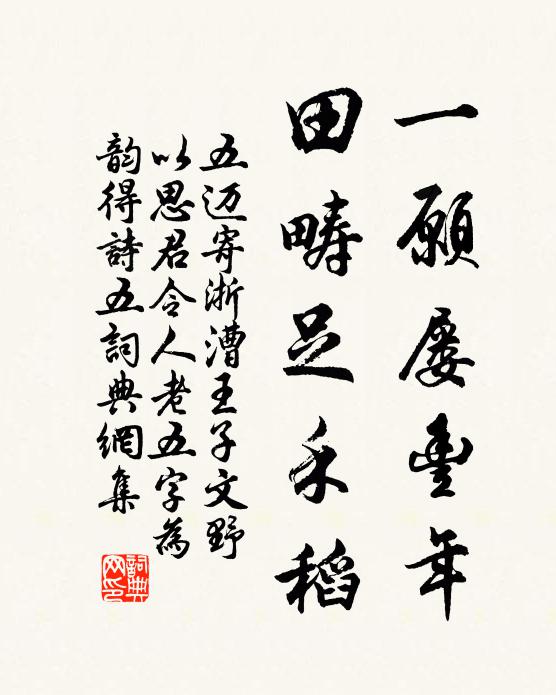 一願屢豐年
田疇足禾稻
五迈寄浙漕王子文野
以思君令人老五字為
韵得詩五詞典網集
詞典网印